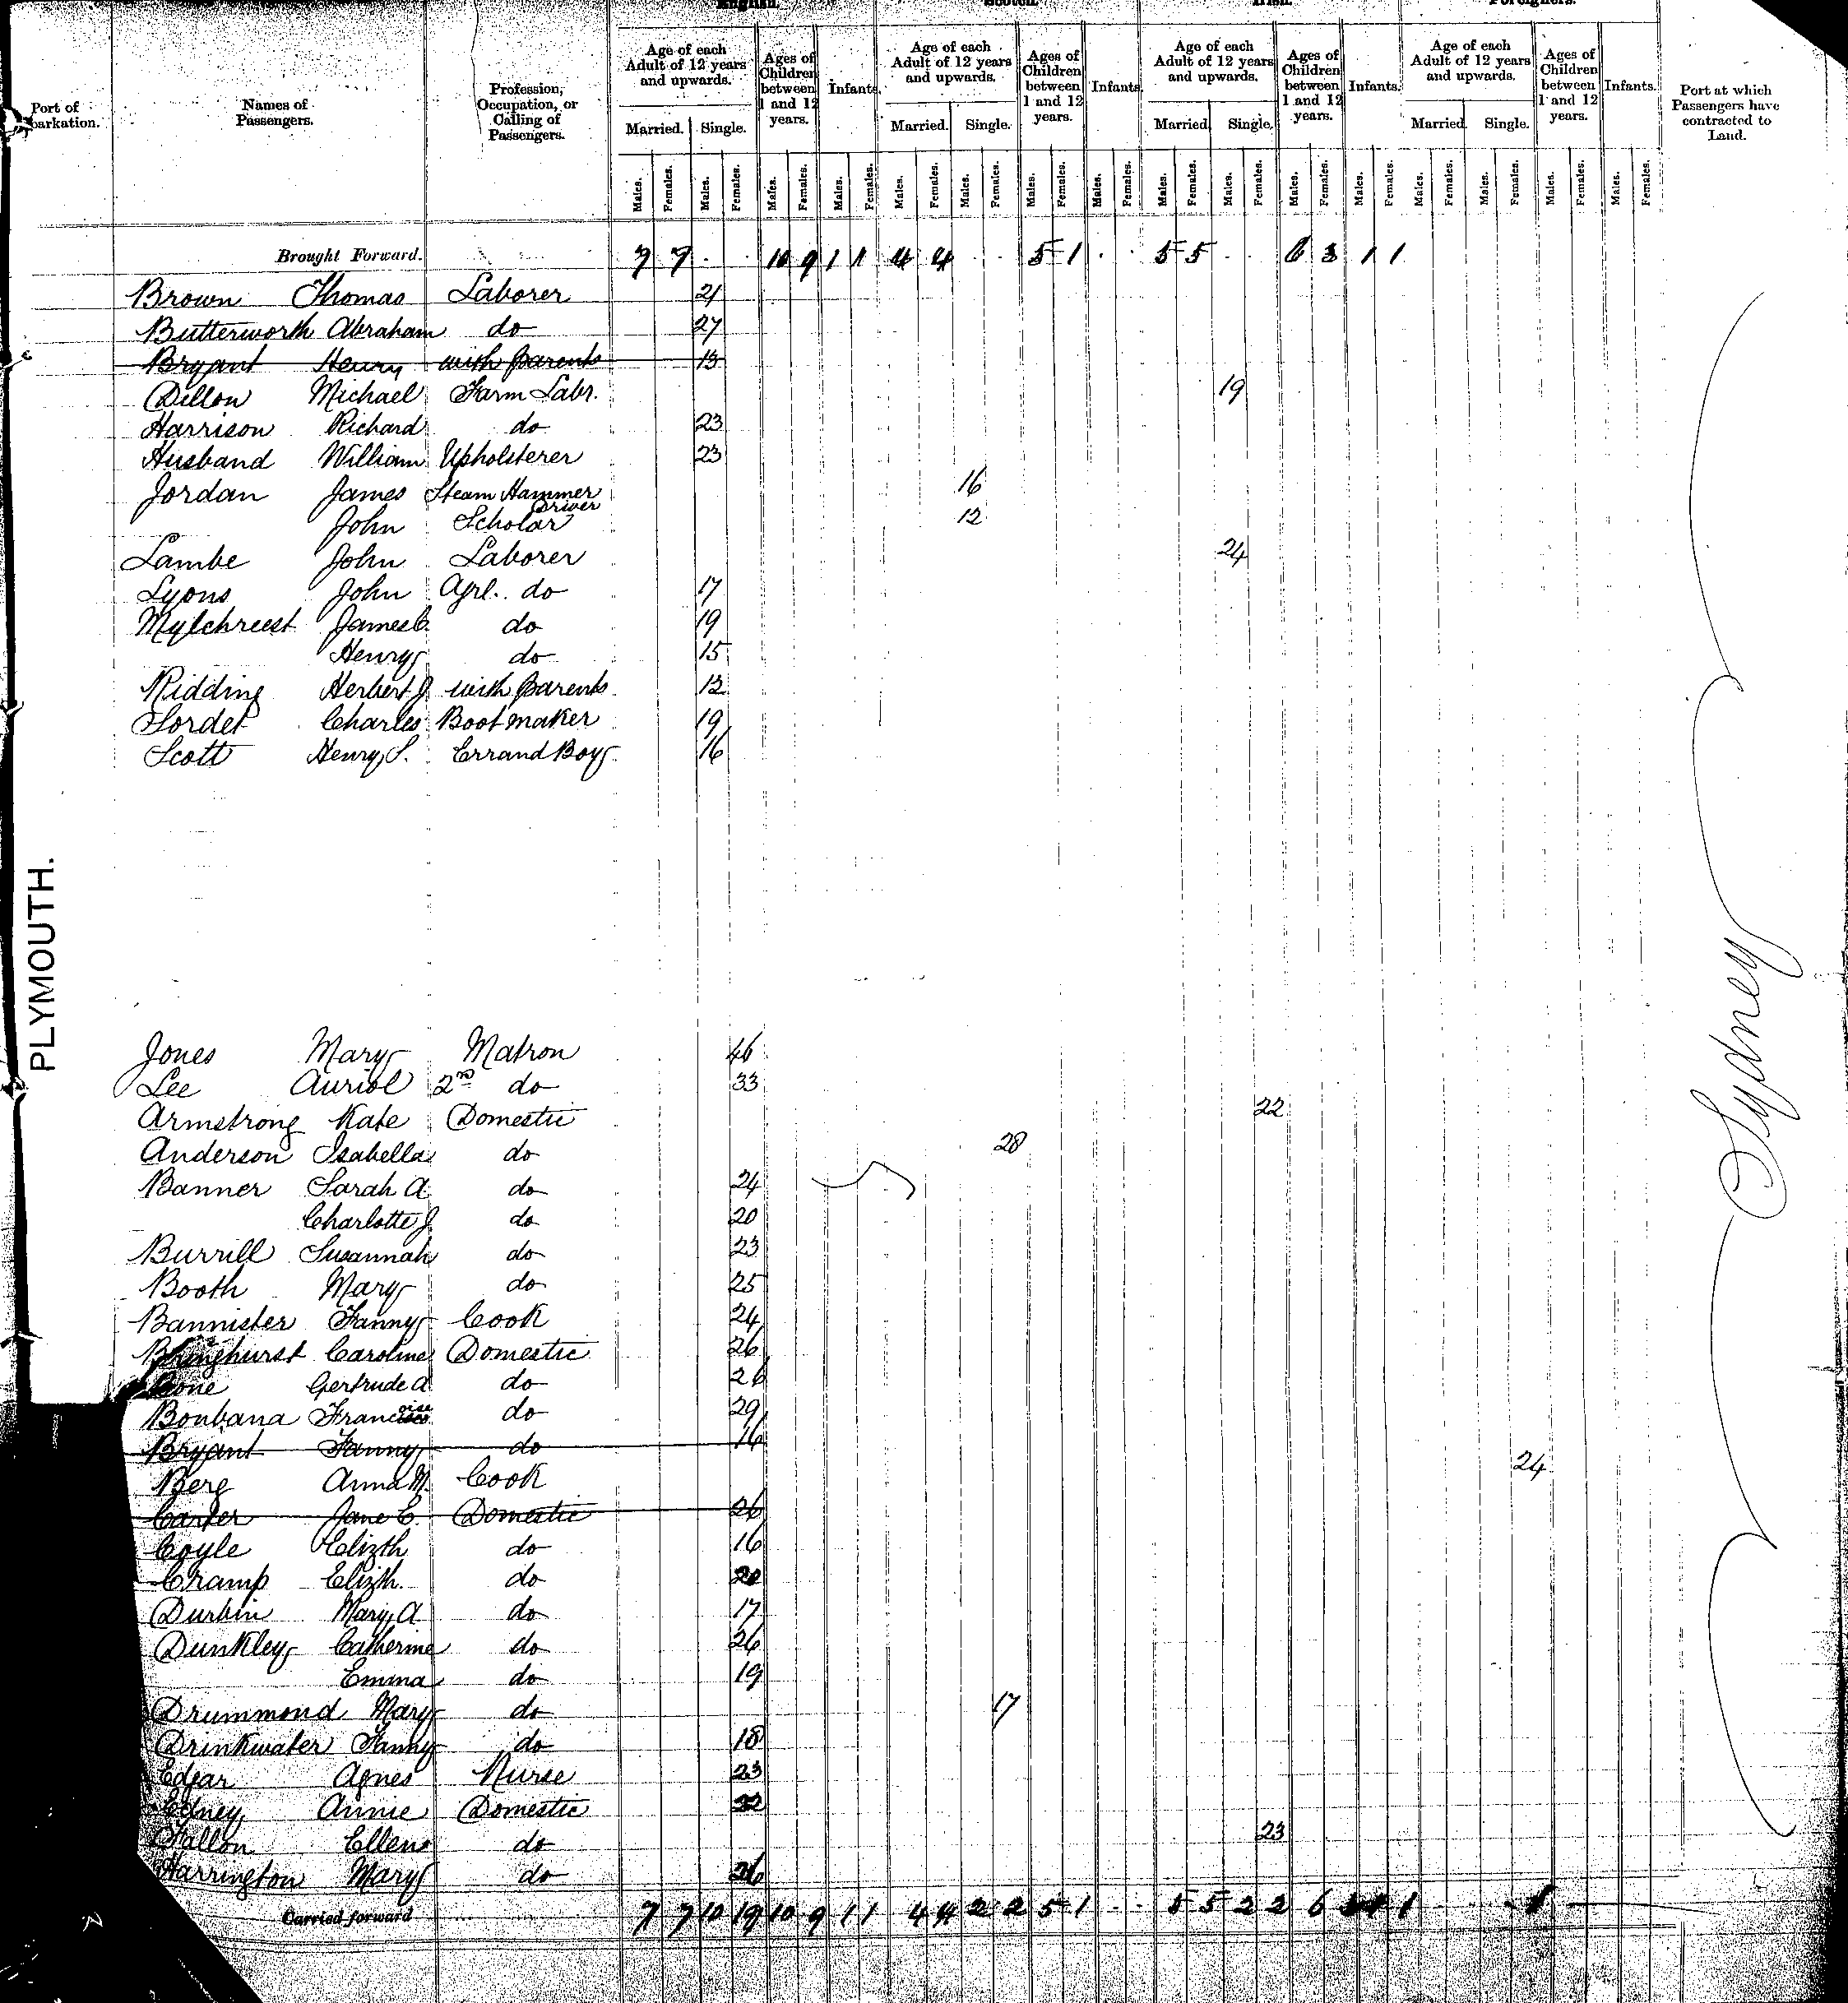 English. Scotch. Irish. Foreigners.
Port of barkation. Names of Passengers. Profession, Occupation, or Calling of Passengers. Age of each Adult of 12 years and upwards. Ages of Children between 1 and 12 years. Infants. Age of each Adult of 12 years and upwards. Ages of Children between 1 and 12 years. Infants. Age of each Adult of 12 years and upwards. Ages of Children between 1 and 12 years. Infants. Age of each Adult of 12 years and upwards. Ages of Children between 1 and 12 years. Infants. Port at which Passengers have contracted to Land.
Married. Single. Married. Single. Married. Single. Married. Single.
Males. Females. Males. Females. Males. Females. Males. Females. Males. Females. Males. Females. Males. Females. Males. Females. Males. Females. Males. Females. Males. Females. Males. Females. Males. Females. Males. Females. Males. Females. Males. Females.
Brought Forward. 7 7 10 9 1 1 4 4 5 1 5 5 6 3 1 1
Brown Thomas Laborer 21
Butterworth Abraham do 27
Bryant Henry with parents 13
Dillon Michael Farm Labr. 19
Harrison Richard do 23
Husband William Upholsterer 23
Jordan James Steam Hammer Driver 16
John Scholar 12
Lambe John Laborer 24
Lyons John Agrl. do 17
Mylchreest James C. do 19
Henry do 15
Ridding Herbert J. with parents 12
Sordet Charles Bootmaker 19
Scott Henry S. Errand Boy 16
PLYMOUTH.
Sydney
Jones Mary Matron 46
Lee Auriol 2nd do 33
Armstrong Kate Domestic 22
Anderson Isabella do 28
Banner Sarah A. do 24
Charlotte J. do 20
Burrill Susannah do 23
Booth Mary do 25
Bannister Fanny Cook 24
Caroline Domestic 26
Gertrude A. do 26
Boubana do 29
Bryant Fanny do 16
Berg Anna M. Cook 24
Carter Jane E. Domestic 26
Coyle Elizth do 16
Cramp Elizth. do 20
Durbin Mary A. do 17
Dunkley Catherine do 26
Emma do 19
Drummond Mary do 17
Drinkwater Fanny do 18
Edgar Agnes Nurse 23
Edney Annie Domestic 22
Fallon Ellen do 23
Harrington Mary do 26
Carried forward 7 7 10 19 10 9 1 1 4 4 2 2 5 1 5 5 2 2 6 1 1